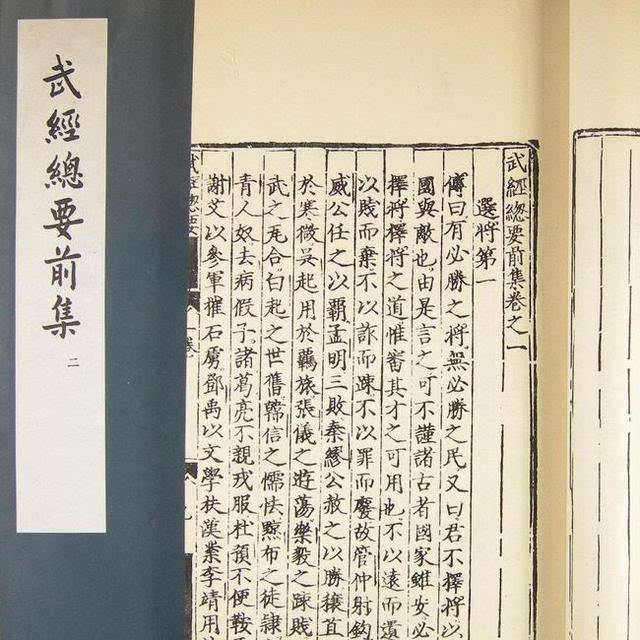 武經總要前集
二
武經總要前集卷之一
選將第一
傳曰有必勝之將無必勝之民又曰君不擇將以
國與敵也由是言之可不謹諸古者國家雖安必
擇將擇將之道惟審其才之可用也不以遠而遺
以賤而棄不以詐而踈不以罪而廢故管仲射鈎
威公任之以霸孟明三敗秦繆公赦之以勝穰苴
於寒微吳起用於羈旅張儀之遊蕩樂毅之踈賤
武之瓦合白起之世舊韓信之懦怯黥布之徒隸
青人奴去病假子諸葛亮不親戎服杜預不便鞍
謝艾以參軍摧石虜鄧禹以文學扶漢業李靖用
武經總要
一卷